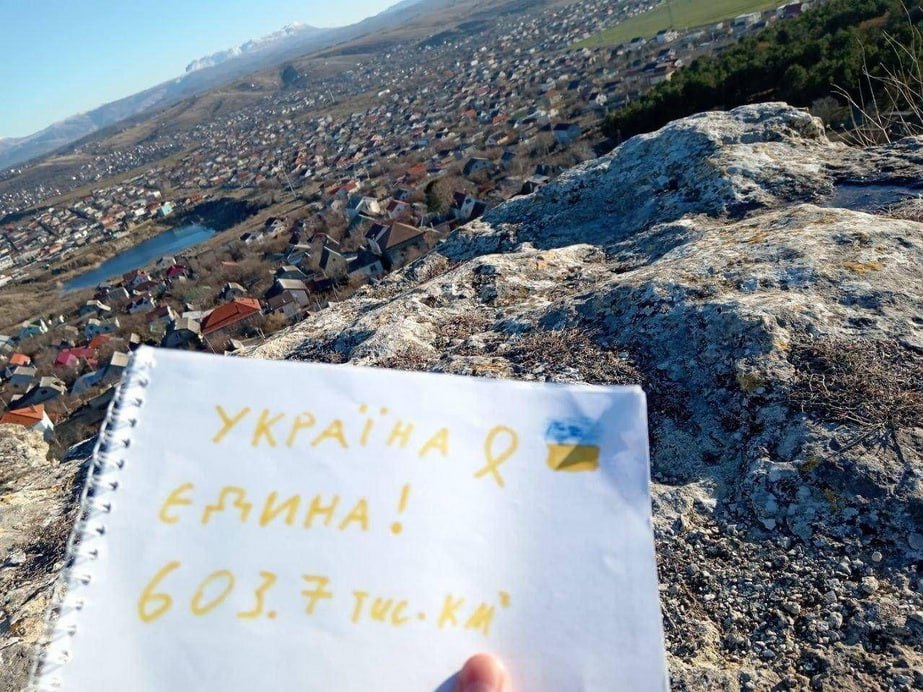 УКРАЇНА
ЄДИНА!
603.7 тис. км²